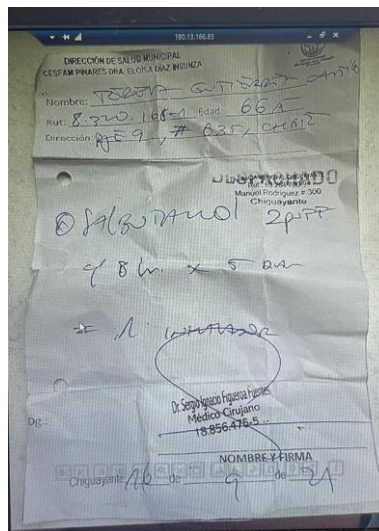 180.13.166.85
DIRECCIÓN DE SALUD MUNICIPAL
CESFAM PINARES DRA. ELOÍSA DÍAZ INSUNZA
Nombre: TERESA GUTIERREZ
Rut: 8.320.168-1 Edad: 66 A
Dirección: # 635,
DESPACHADO
Manuel Rodriguez # 300
Chiguayante
SALBUTAMOL 2 puff
c/ 8 hr x 5 días
1. INHALADOR
Dr. Sergio Ignacio Figueroa Fuentes
Médico Cirujano
18.856.476-5
Dg.:
NOMBRE Y FIRMA
Chiguayante 16 de 9 de 21